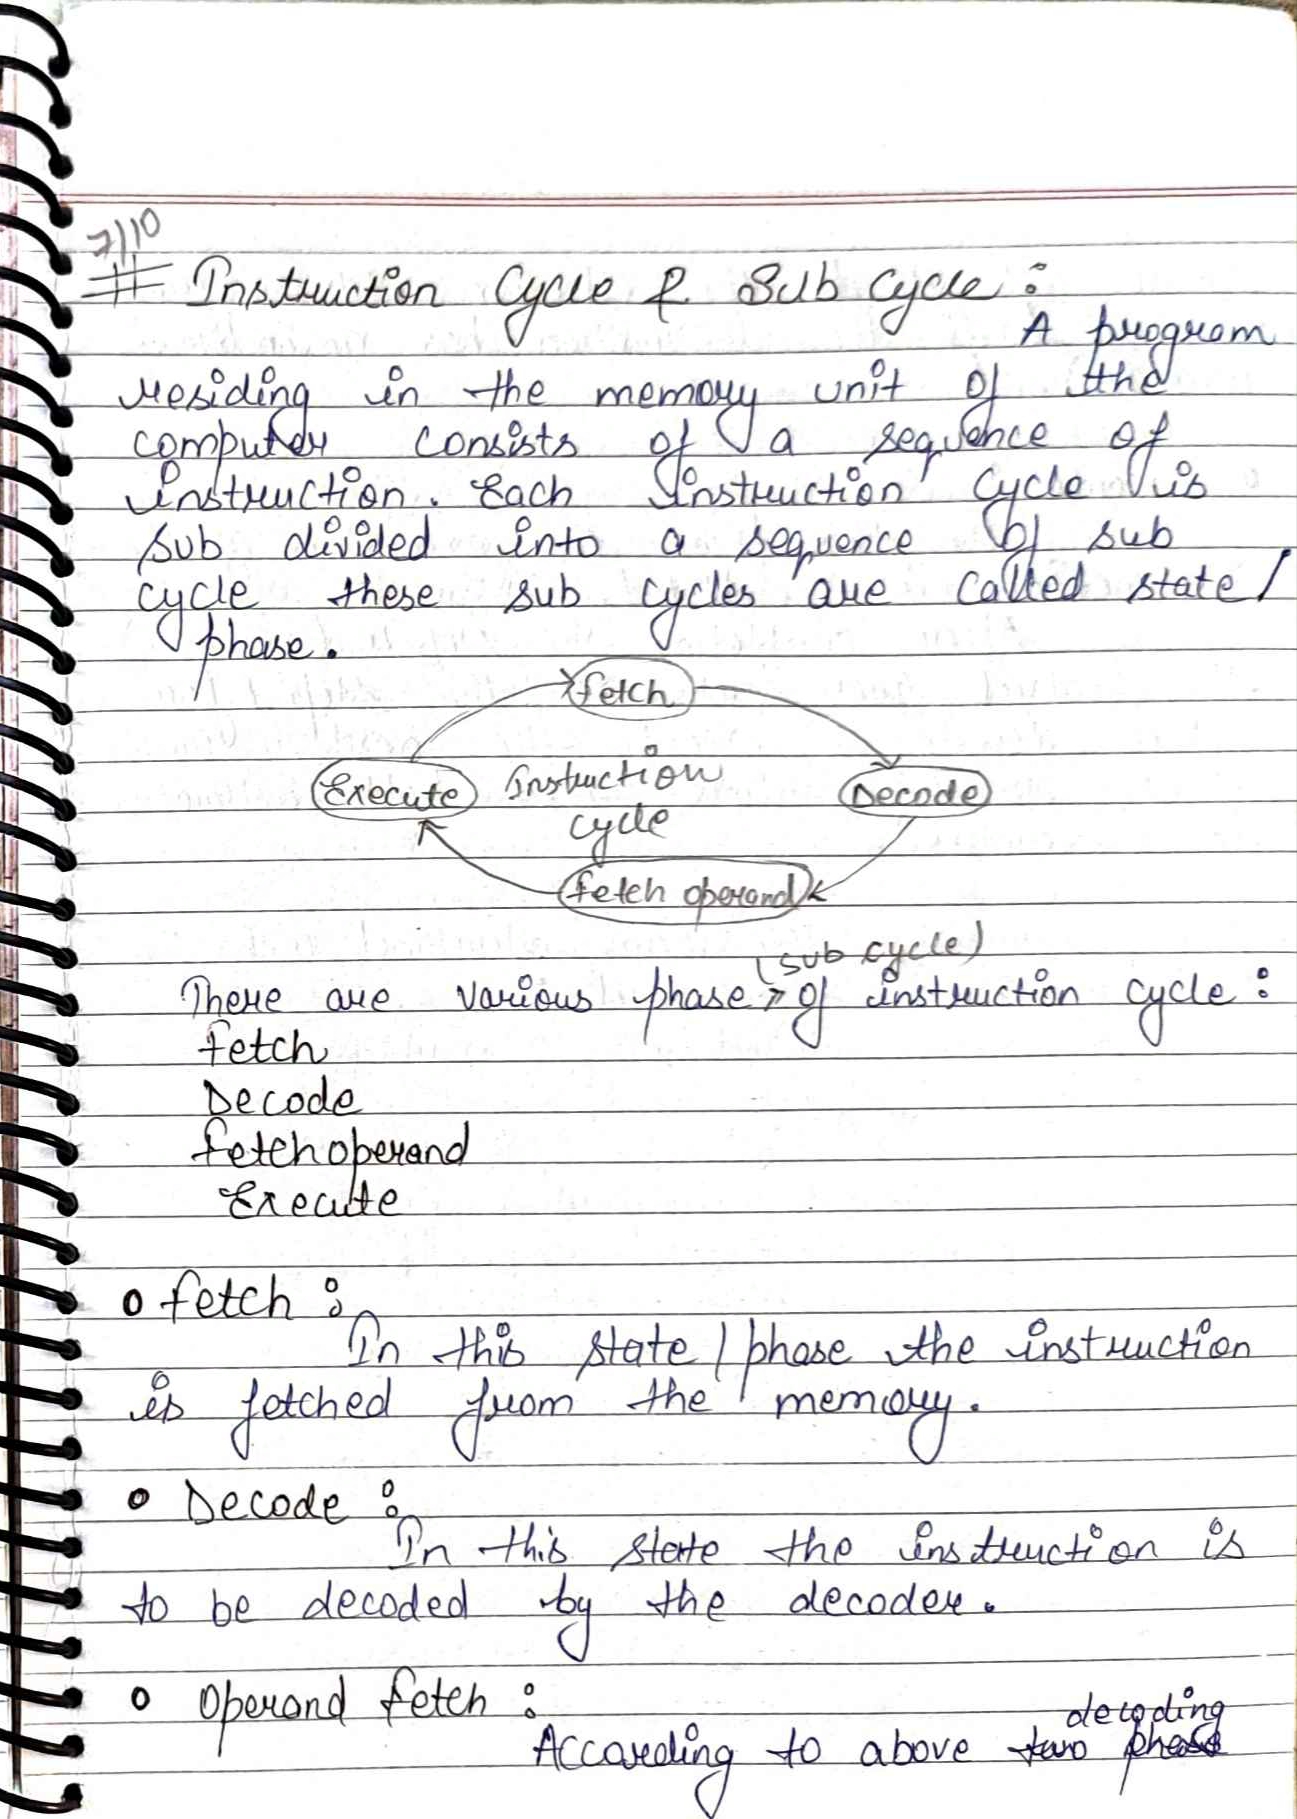 7/10
# Instruction Cycle & Sub Cycle :
A program
residing in the memory unit of the
computer consists of a sequence of
instruction. Each instruction cycle is
sub divided into a sequence of sub
cycle these sub cycles are called state/
phase.
fetch
Execute Instruction Decode
cycle
fetch operand
(sub cycle)
There are various phase » of instruction cycle :
fetch
Decode
fetch operand
Execute
o fetch :
In this state / phase the instruction
is fetched from the memory.
o Decode :
In this state the instruction is
to be decoded by the decoder.
o Operand fetch :
decoding
According to above two phase